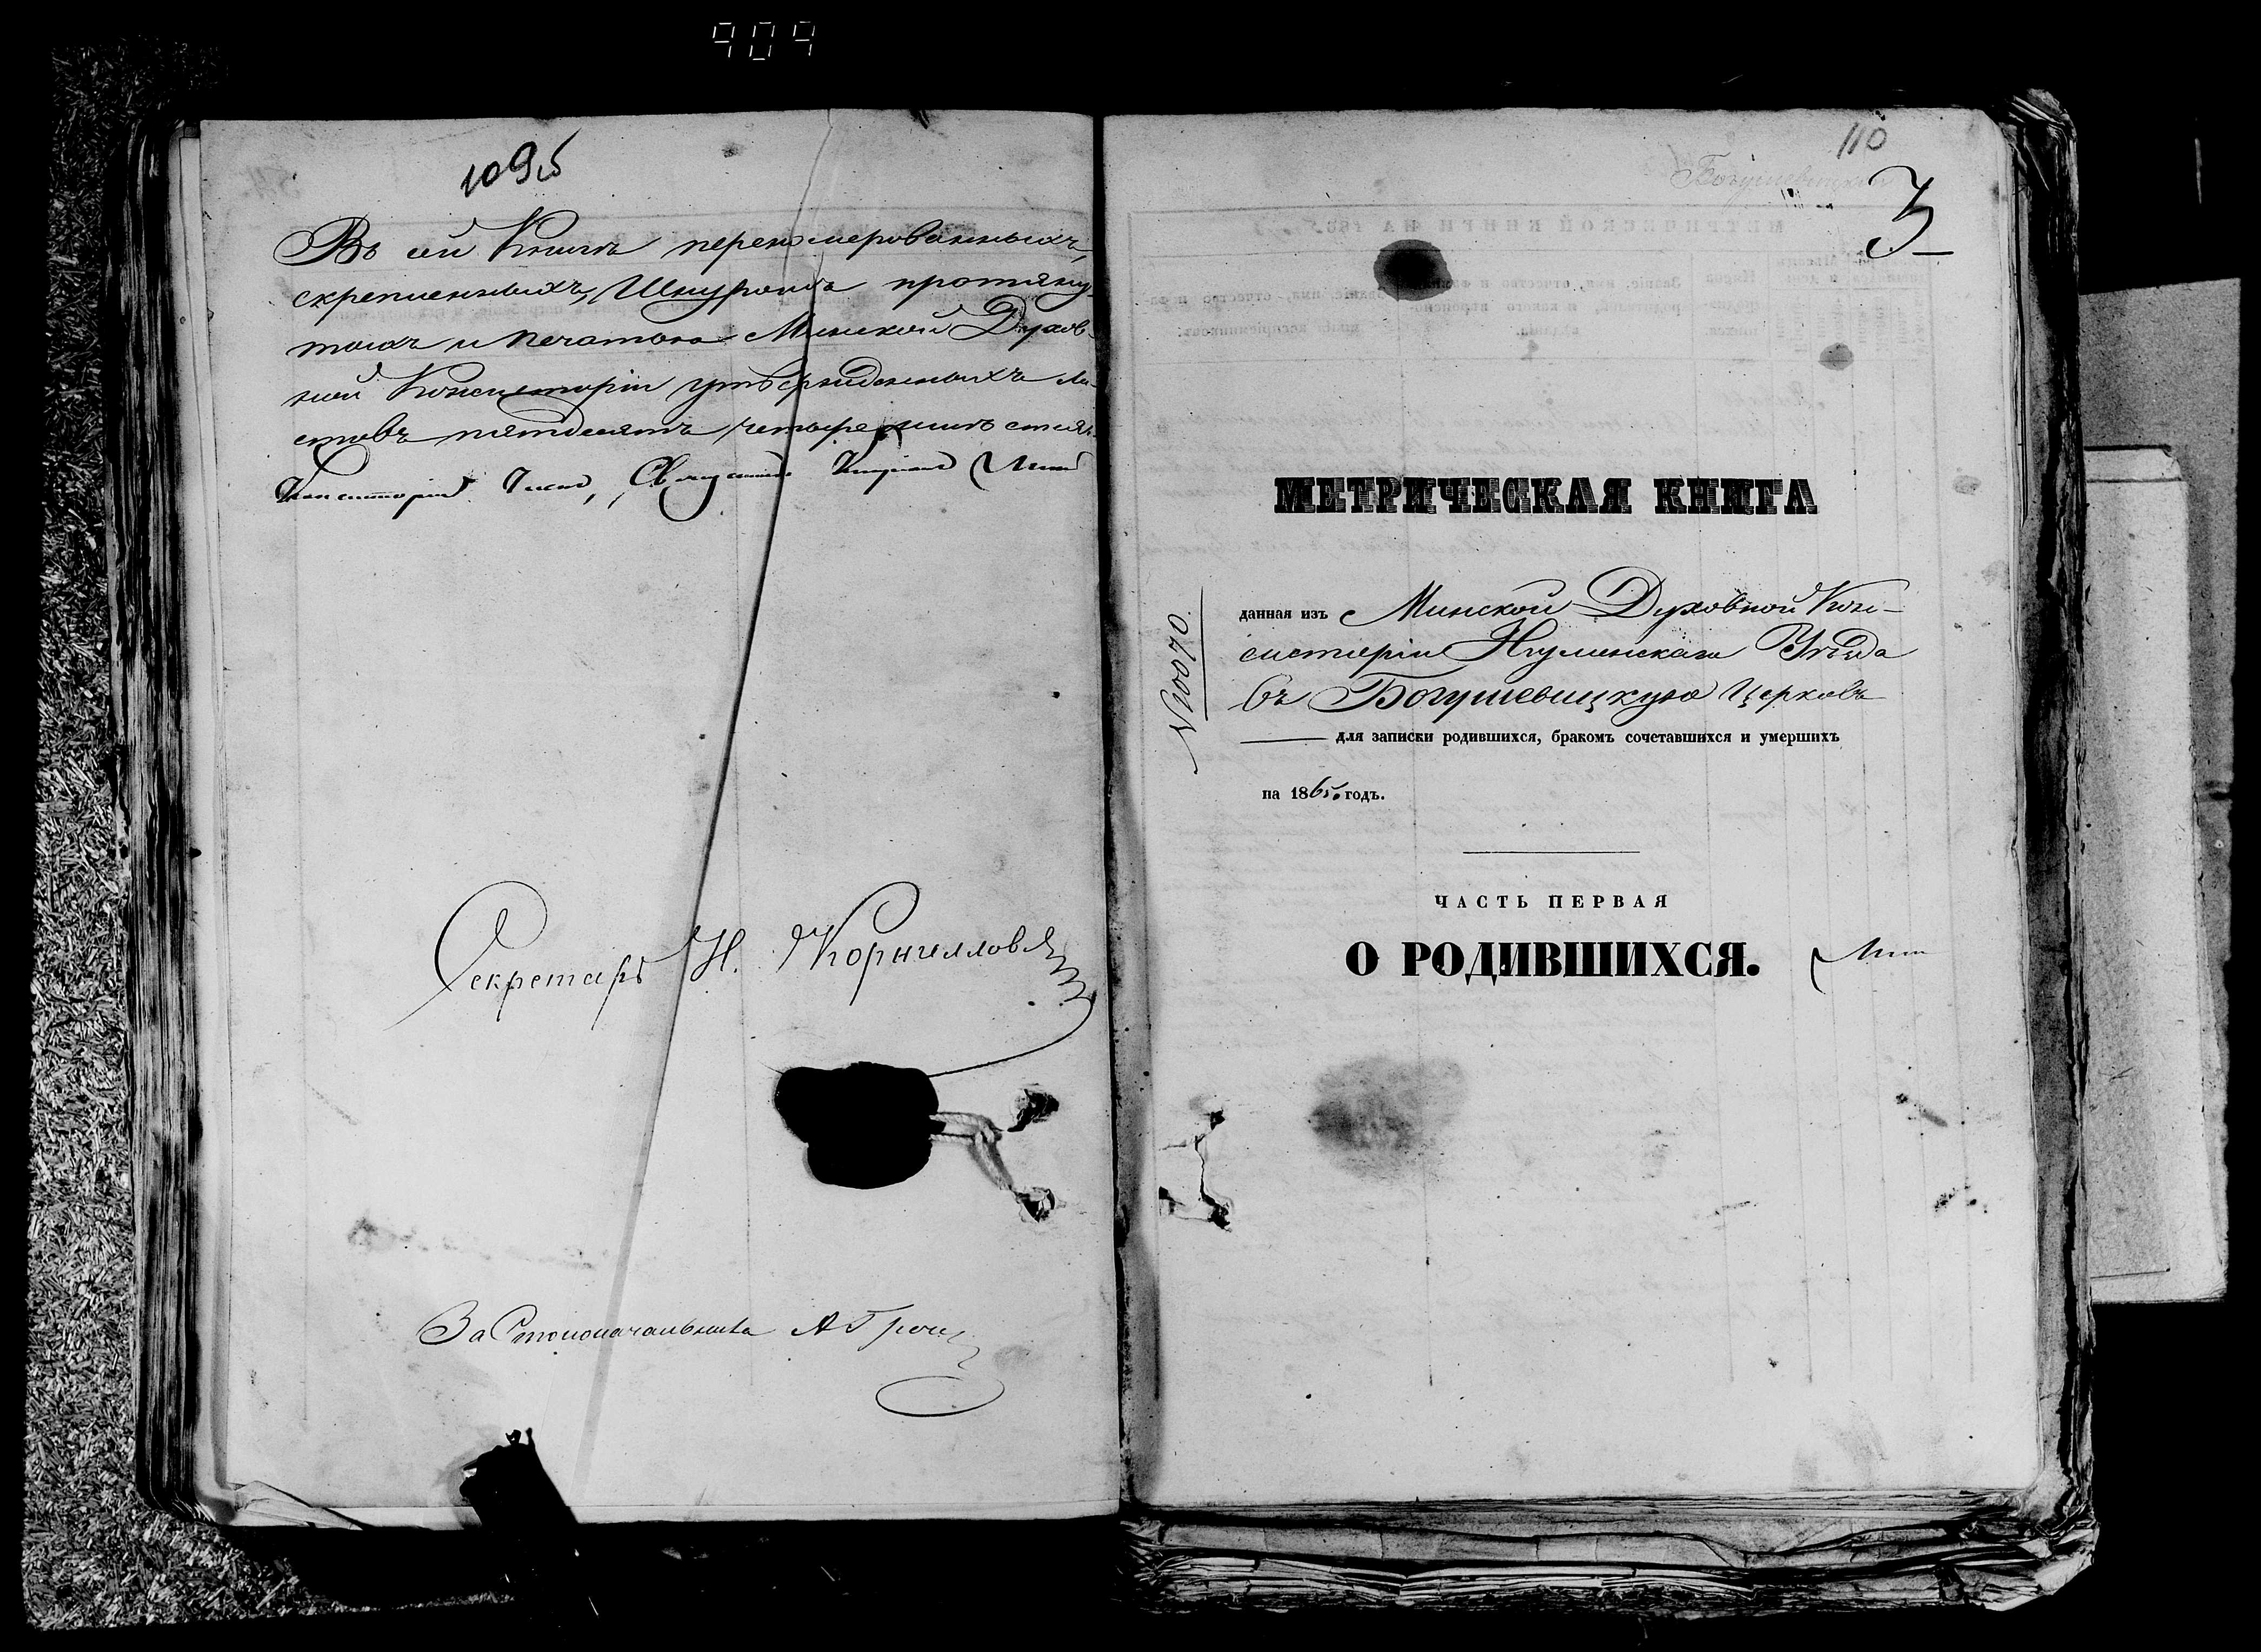 909
109б
Въ сей Книгѣ перенумерованныхъ,
скрепленныхъ, Шнуромъ протяну-
тыхъ и печатью Минской Духов-
ной Консисторіи утвержденныхъ ли-
стовъ пятдесятъ четыре
Консисторіи Членъ, Священникъ
Секретарь Н. Корниллов
За Столоначальника А
110
Богушевицкая
3
МЕТРИЧЕСКАЯ КНИГА
данная изъ Минской Духовной Кон-
систоріи Игуменскаго Уѣзда
въ Богушевицкую Церковь
для записки родившихся, бракомъ сочетавшихся и умершихъ
на 1865 годъ.
№ 10070.
ЧАСТЬ ПЕРВАЯ
О РОДИВШИХСЯ.